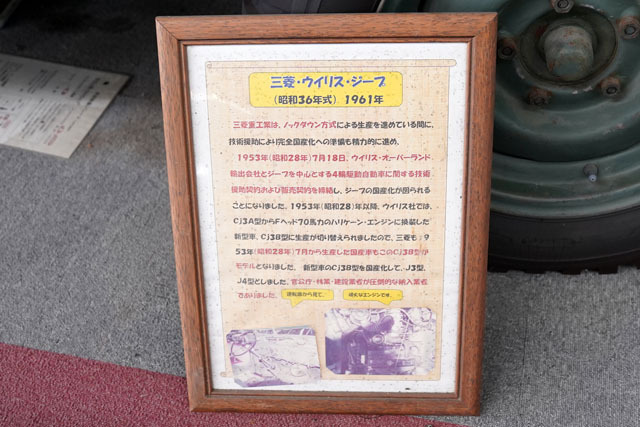 三菱・ウイリス・ジープ
(昭和36年式) 1961年
三菱重工業は、ノックダウン方式による生産を進めている間に、
技術援助により完全国産化への準備も精力的に進め、
1953年(昭和28年)7月18日、ウイリス・オーバーランド
輸出会社とジープを中心とする4輪駆動自動車に関する技術
援助契約および販売契約を締結し、ジープの国産化が図られる
ことになりました。1953年(昭和28)年以降、ウイリス社では、
Cj3A型からFヘッド70馬力のハリケーン・エンジンに換装した
新型車、Cj3B型に生産が切り替えられましたので、三菱も19
53年(昭和28年)7月から生産した国産車もこのCj3B型が
モデルとなりました。 新型車のCj3B型を国産化して、J3型、
J4型としました。官公庁・林業・建設業者が圧倒的な納入業者
でありました。
運転席から見て。
頑丈なエンジンです。